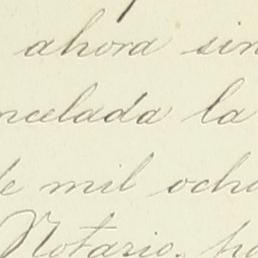 ahora sin
ncelada la
de mil ocho
Notario, ha